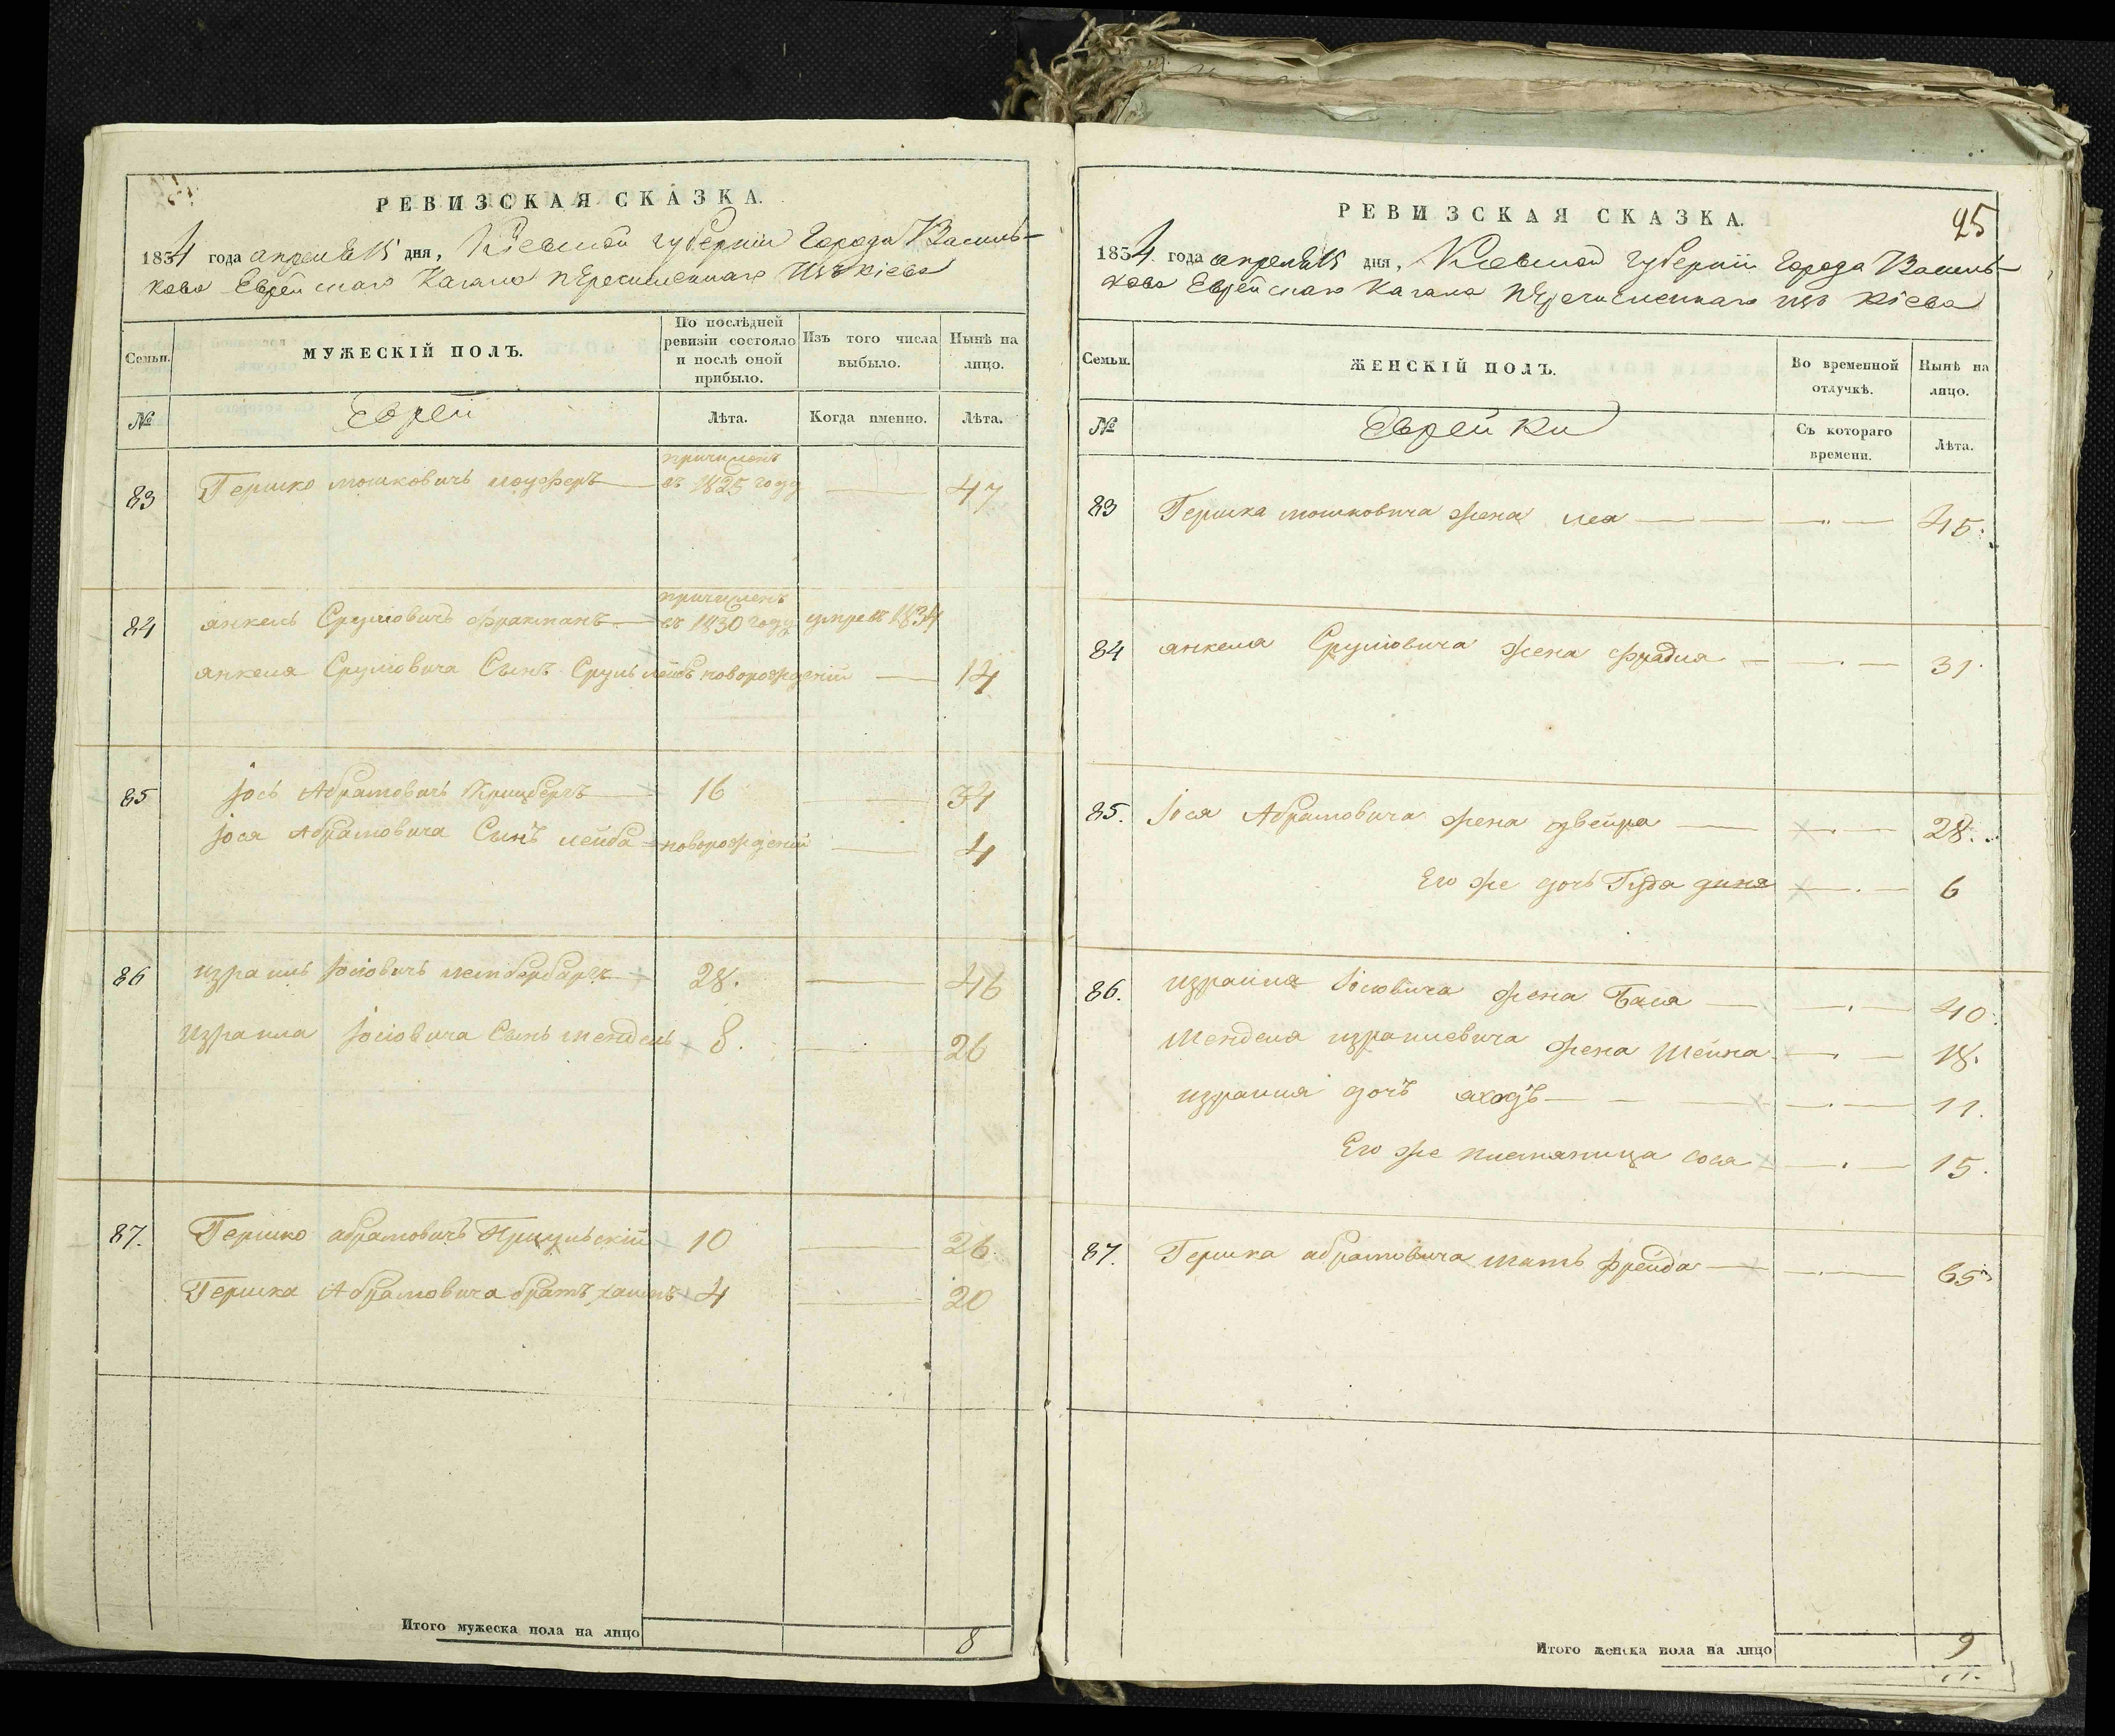 РЕВИЗСКАЯ СКАЗКА.
1834 года апреля 15 дня, Кіевской губерніи Города Василь-
кова Еврейскаго Кагала перечисленнаго Изъ Кіева
Семьи.
МУЖЕСКІЙ ПОЛЪ.
По послѣдней ревизіи состояло и послѣ оной прибыло.
Изъ того числа выбыло.
Нынѣ на лицо.
№
Еврей
Лѣта.
Когда именно.
Лѣта.
83 Гершко мошковичъ причисленъ въ 1825 году 47
84 янкель Срулiовичъ причисленъ въ 1830 году умре въ 1834
янкеля Срулiовича Сынъ Сруль лейбъ новорожденій 14
85 Іось Абрамовичъ 16 34
Іося Абрамовича Сынъ лейба новорожденій 4
86 израиль Іосіовичъ 28. 46
израиля Іосіовича Сынъ мендель 8. 26
87. Гершко абрамовичъ 10 26.
Гершка Абрамовича братъ хаимъ 4 20
Итого мужеска пола на лицо 8
РЕВИЗСКАЯ СКАЗКА.
25
1834 года апреля 15 дня, Кіевской губерніи Города Василь-
кова Еврейскаго Кагала перечисленнаго изъ Кіева
Семьи.
ЖЕНСКІЙ ПОЛЪ.
Во временной отлучкѣ.
Нынѣ на лицо.
№
Еврейки
Съ котораго времени.
Лѣта.
83 Гершка мошковича жена леа 45.
84 янкеля Срулiовича жена фрадля 31.
85. Іося Абрамовича жена двейра 28.
Его же дочь Гуда дина 6
86. израиля Іосіовича жена Бася 40.
Менделя израилевича жена Шейна 18.
израиля дочъ 11.
Его же племяница сося 15.
87. Гершка абрамовича мать фрейда 65
Итого женска пола на лицо 9